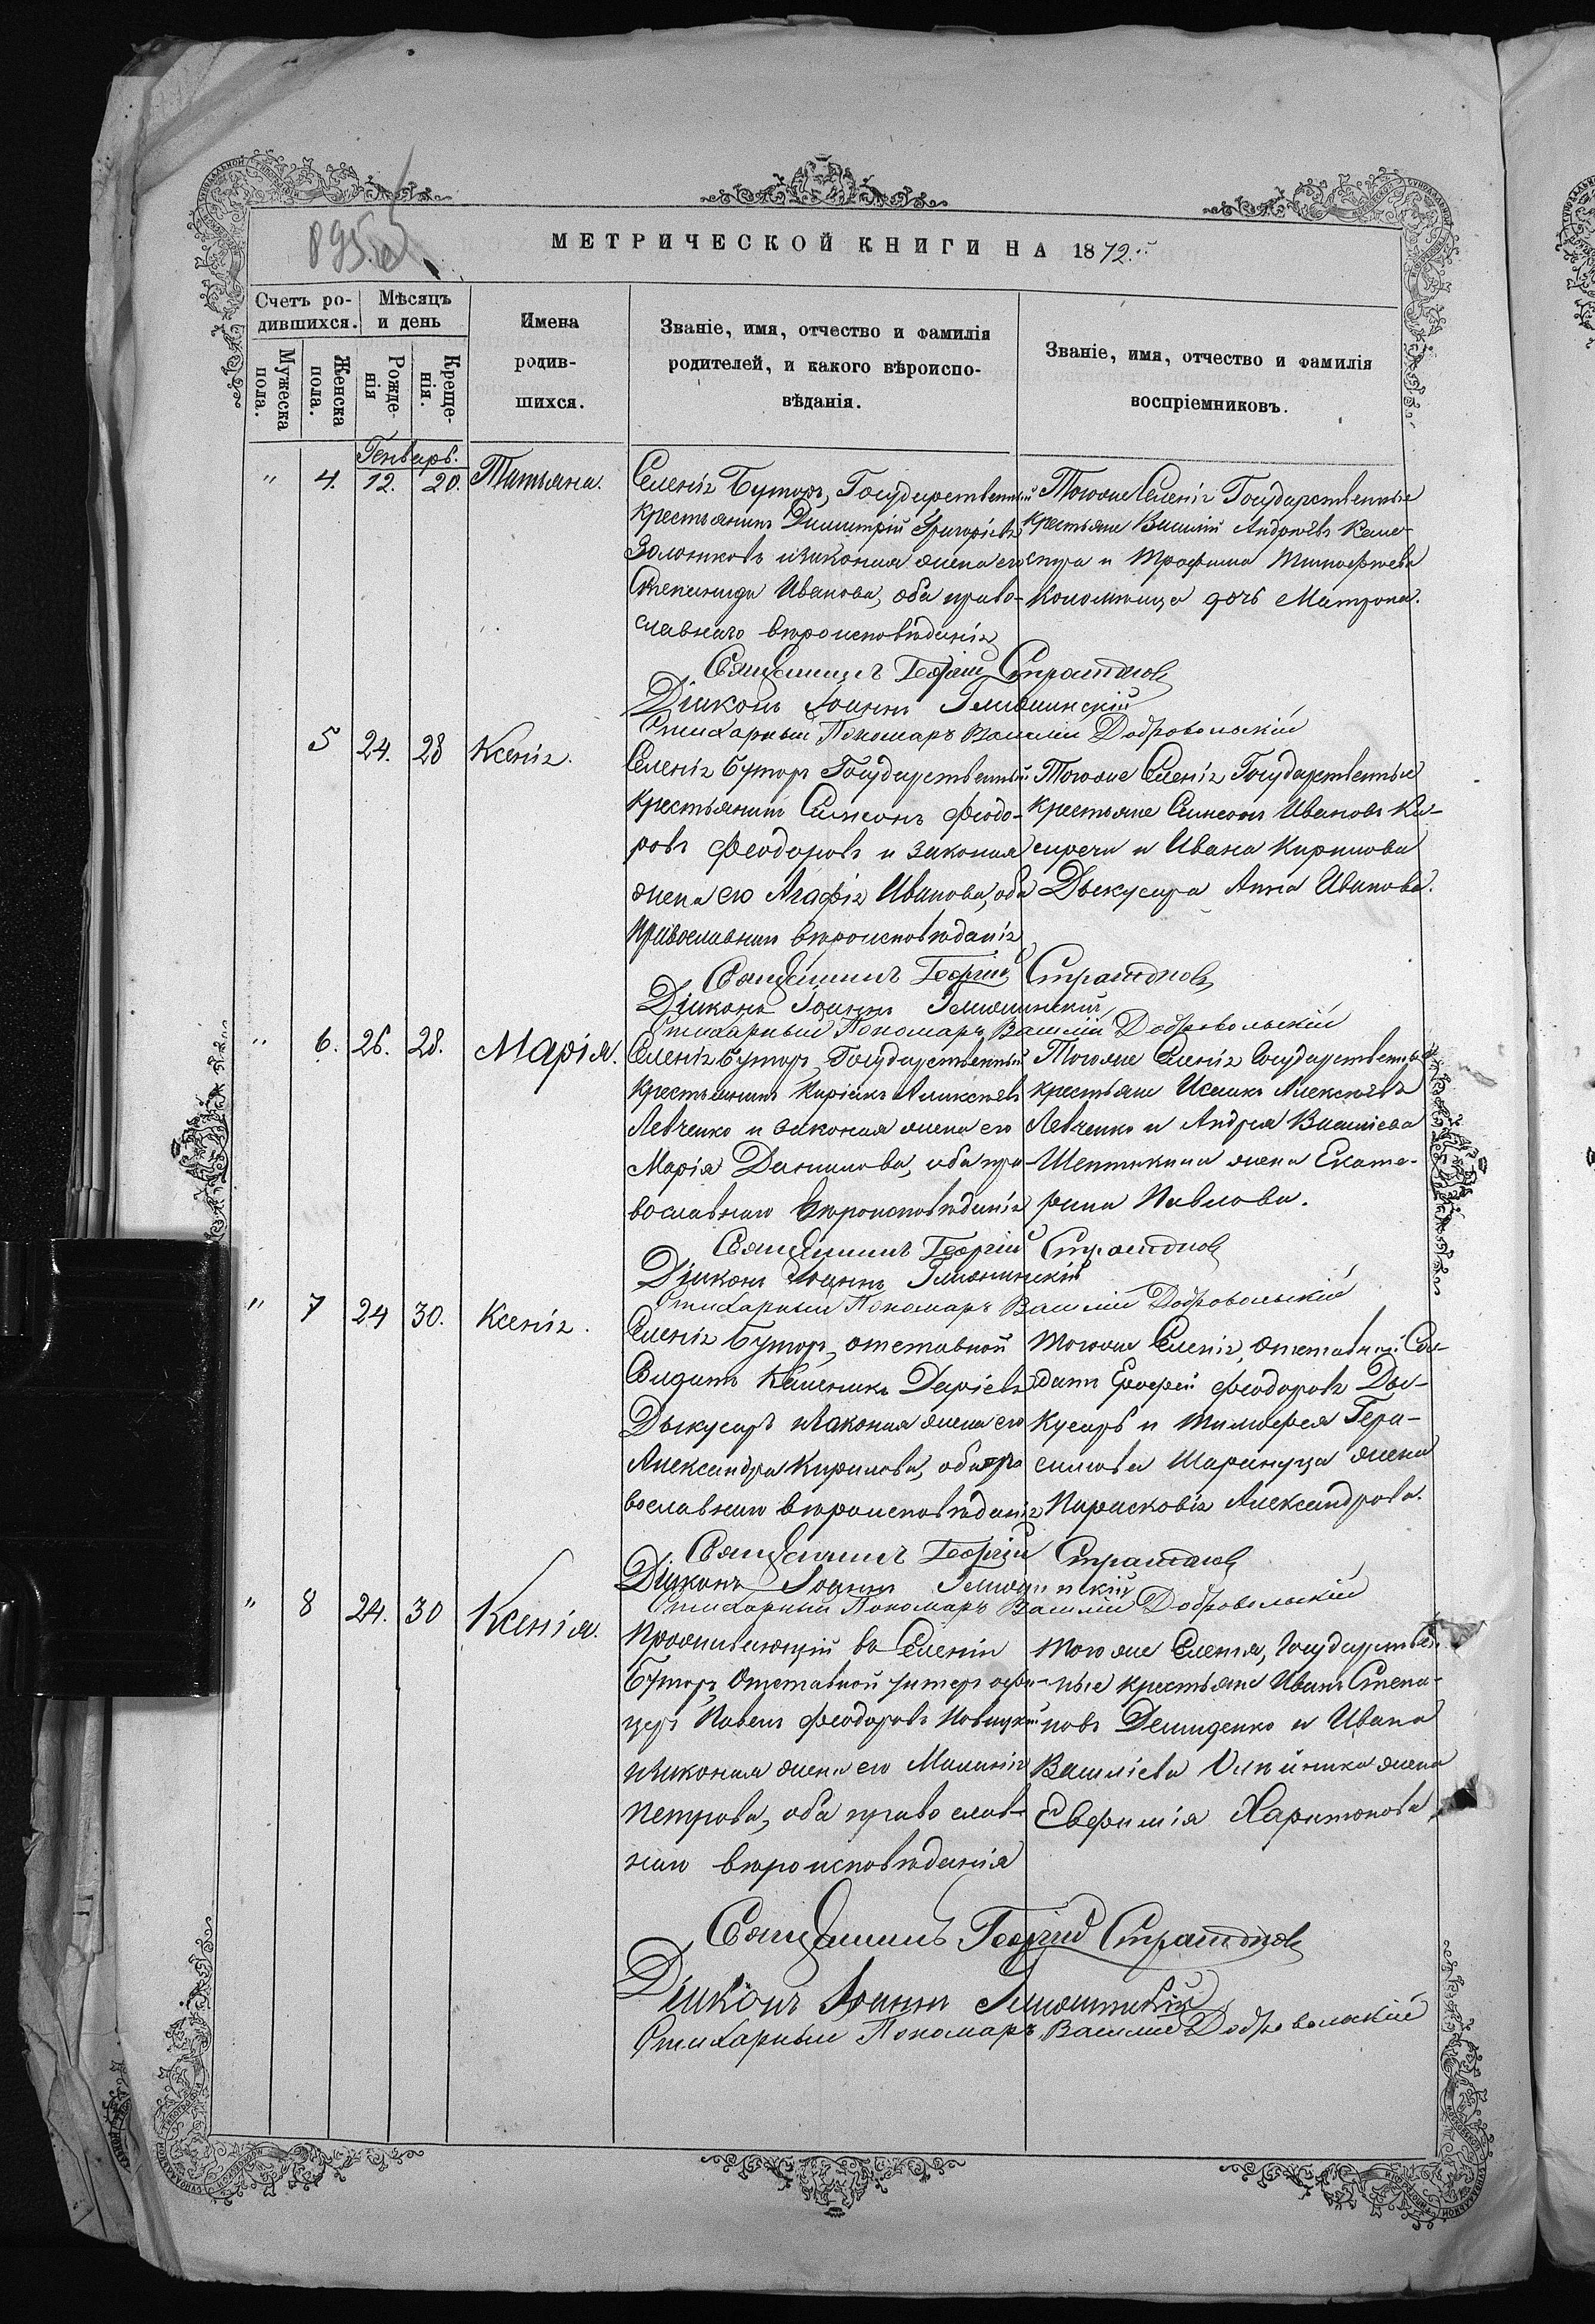 МЕТРИЧЕСКОЙ КНИГИ НА 1872.
Счетъ ро-
дившихся.
Мѣсяцъ
и день
Мужеска пола.
Женска пола.
Рожде-
нія
Креще-
нія.
Имена
родив-
шихся.
Званіе, имя, отчество и фамилія
родителей, и какого вѣроиспо-
вѣданія.
Званіе, имя, отчество и фамилія
воспріемниковъ.
Генварь.
" 4. 12. 20. Татьяна.
Селенія Буторъ, Государственный
крестьянинъ Димитрій Григоріевъ
и законная жена его
Иванова, оба право-
славнаго вѣроисповѣданія
Тогоже Селенія Государственные
крестьяне Василій Андреевъ
и Трофима Тимофѣева
дочь Матрона.
Священникъ Георгій Стратоновъ
Діаконъ Іоаннъ
Стихарный Пономарь Василій Добровольскій
5 24. 28 Ксенія.
Селенія Буторъ Государственный
крестьянинъ Симеонъ Феодо-
ровъ Феодоровъ и законная
жена его Агафія Иванова, оба
Православнаго вѣроисповѣданія
Тогоже Селенія Государственные
крестьяне Симеонъ Ивановъ
и Ивана Кирилова
Дыкусара Анна Иванова.
Священникъ Георгій Стратоновъ
Діаконъ Іоаннъ
Стихарный Пономарь Василій Добровольскій
" 6. 26. 28. Марія.
Селенія Буторъ, Государственный
крестьянинъ Киріакъ Алексѣевъ
Левченко и законная жена его
Марія Данилова, оба пра-
вославнаго вѣроисповѣданія
Тогоже Селенія Государственные
крестьяне Исаакъ Алексѣевъ
Левченко и Андрея Василіева
жена Екате-
рина Павлова.
Священникъ Георгій Стратоновъ
Діаконъ Іоаннъ
Стихарный Пономарь Василій Добровольскій
" 7 24 30. Ксенія.
Селенія Буторъ, отставной
Солдатъ Каленикъ Даріевъ
Дыкусаръ и законная жена его
Александра Кирилова, оба пра
вославнаго вѣроисповѣданія
Тогоже Селенія, отставный Сол-
датъ Ерофей Феодоровъ Ды-
кусаръ и Тимофея Гера-
симова жена
Парасковія Александрова.
Священникъ Георгій Стратоновъ
Діаконъ Іоаннъ
Стихарный Пономарь Василій Добровольскій
" 8 24. 30 Ксенія.
Проживающій въ Селеніи
Буторъ Отставной унтеръ офи-
церъ Павелъ Феодоровъ Новицкій
и законная жена его Маланія
Петрова, оба православ-
наго вѣроисповѣданія
Тогоже Селенія, Государствен-
ные крестьяне Иванъ Степа-
новъ Демиденко и Ивана
Василіева Олійника жена
Евфимія Харитонова
Священникъ Георгій Стратоновъ
Діаконъ Іоаннъ
Стихарный Пономарь Василій Добровольскій